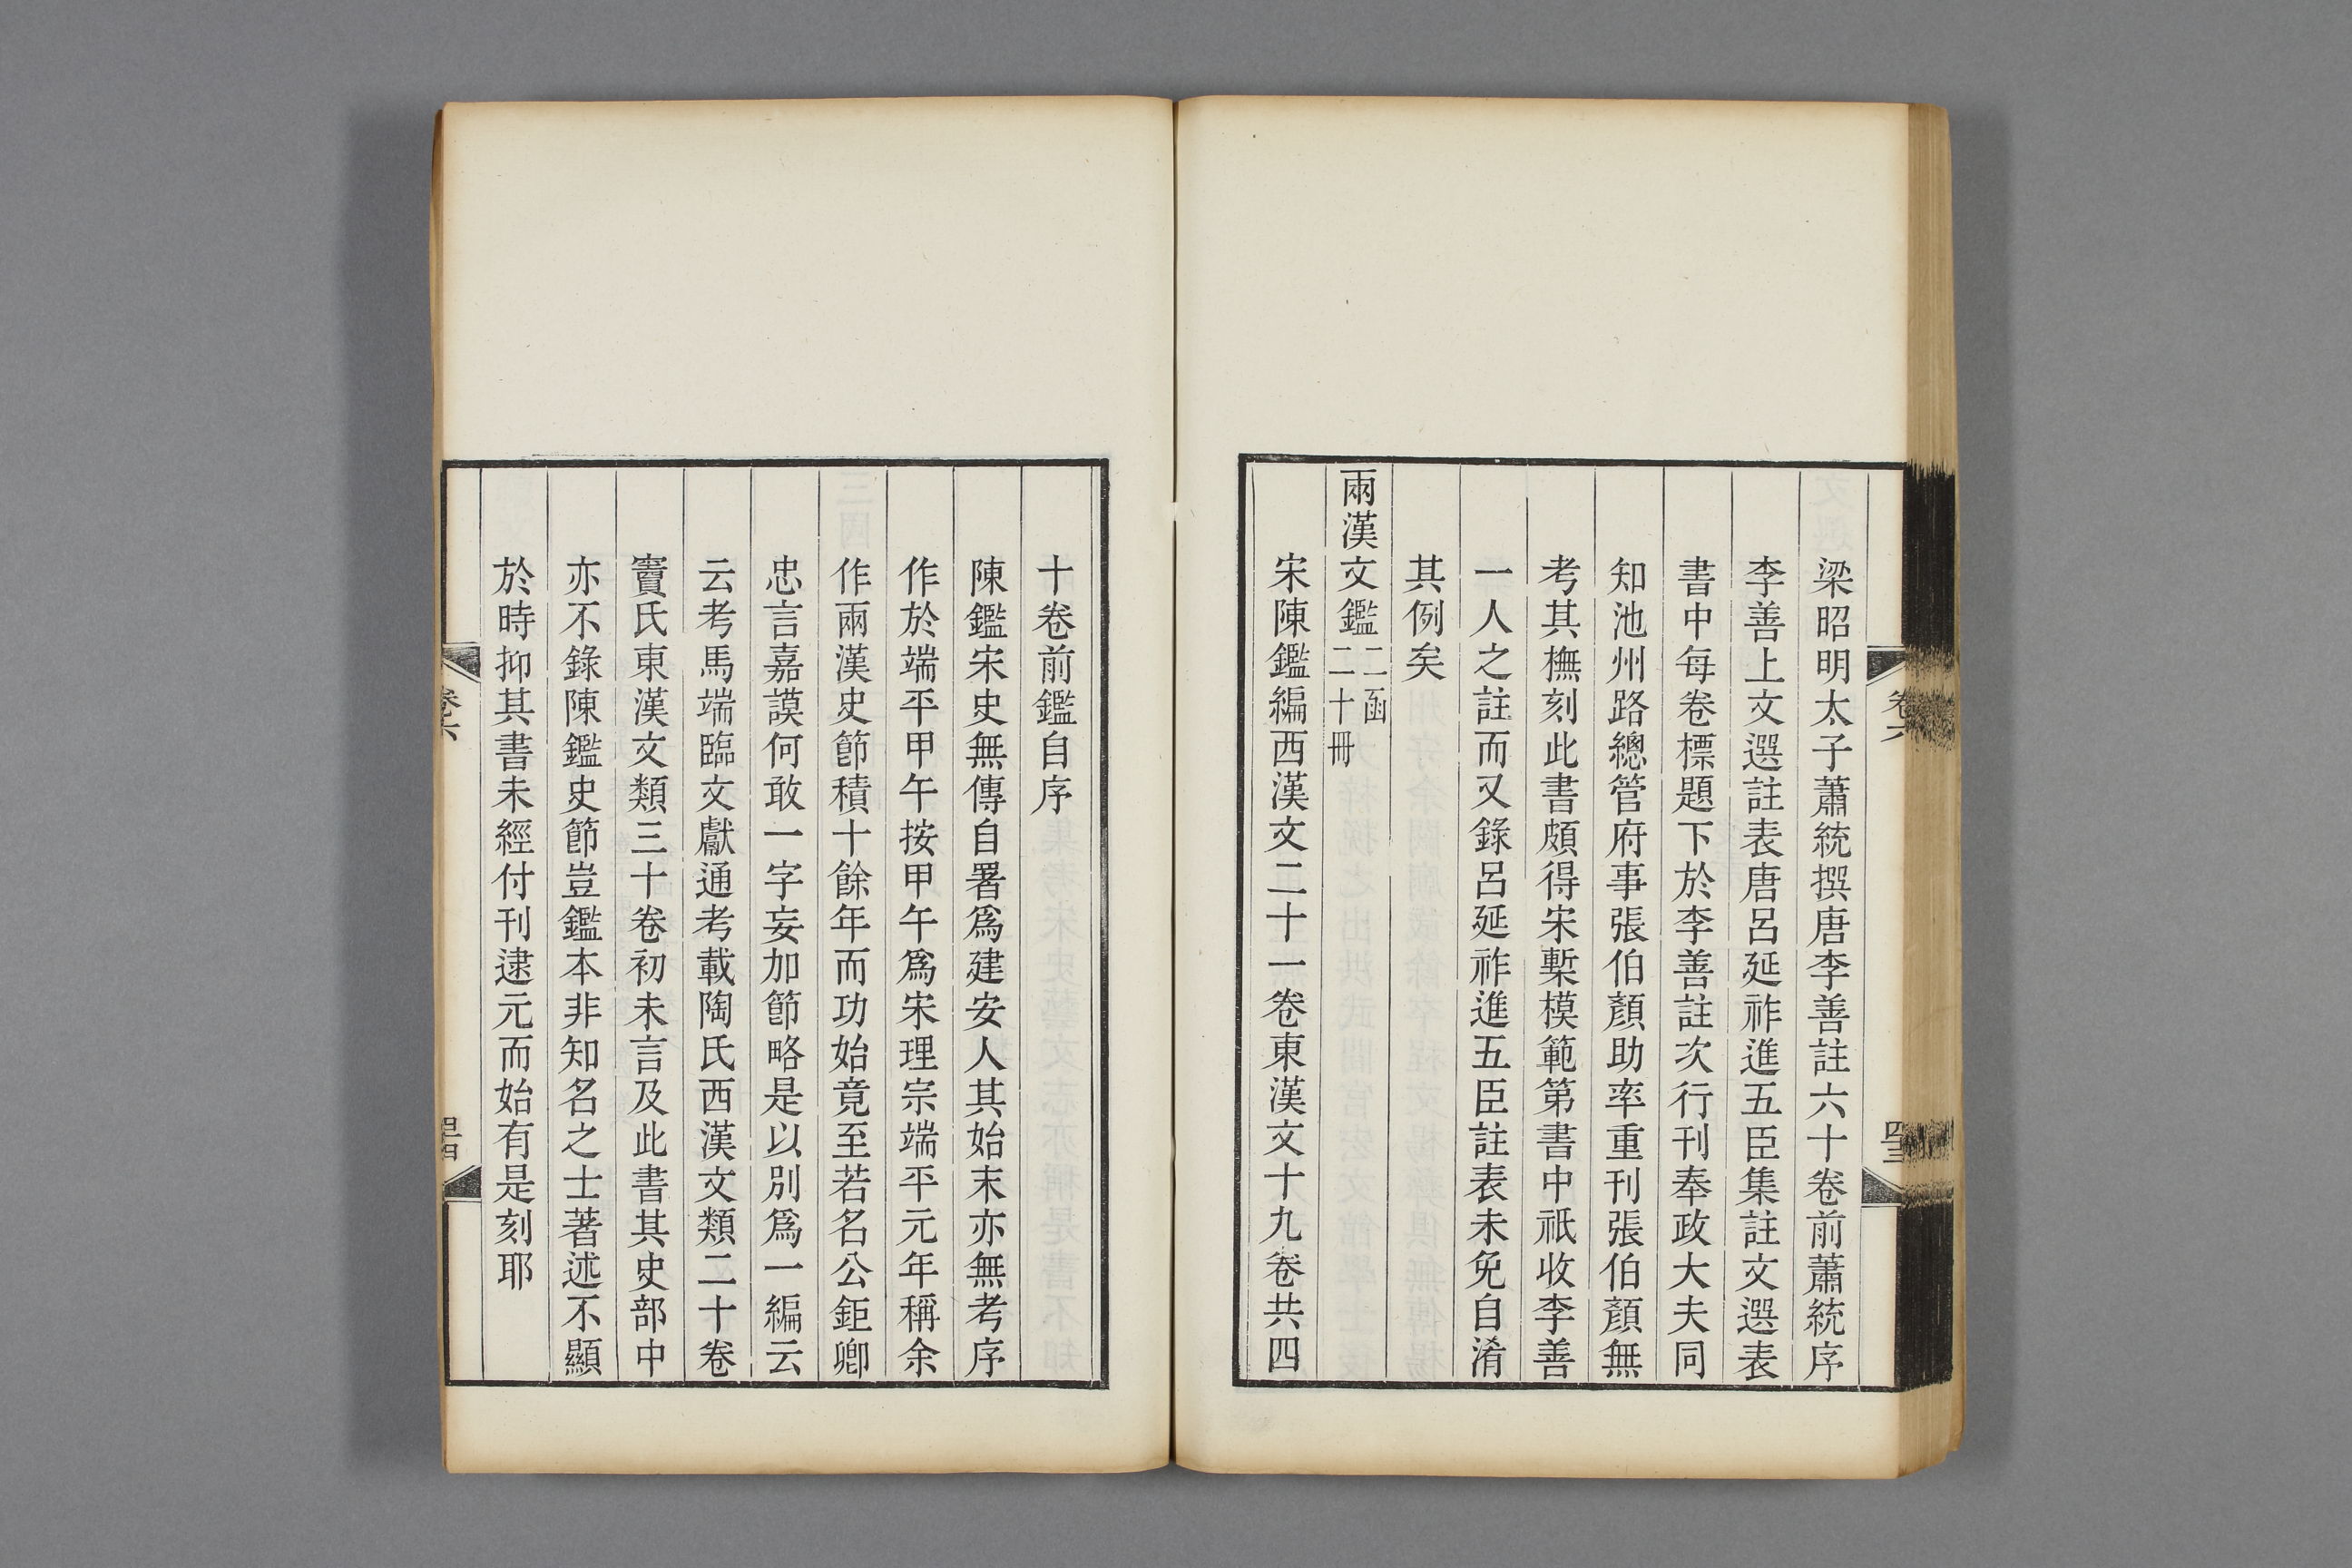 梁昭明太子蕭統撰唐李善註六十卷前蕭統序
李善上文選註表唐呂延祚進五臣集註文選表
書中每卷標題下於李善註次行刊奉政大夫同
知池州路總管府事張伯顏助率重刊張伯顏無
考其橅刻此書頗得宋槧模範第書中祇收李善
一人之註而又錄呂延祚進五臣註表未免自淆
其例矣
兩漢文鑑二函二十冊
宋陳鑑編西漢文二十一卷東漢文十九卷共四
卷六
四十三
十卷前鑑自序
陳鑑宋史無傳自署爲建安人其始末亦無考序
作於端平甲午按甲午爲宋理宗端平元年稱余
作兩漢史節積十餘年而功始竟至若名公鉅卿
忠言嘉謨何敢一字妄加節略是以別爲一編云
云考馬端臨文獻通考載陶氏西漢文類二十卷
竇氏東漢文類三十卷初未言及此書其史部中
亦不錄陳鑑史節豈鑑本非知名之士著述不顯
於時抑其書未經付刊逮元而始有是刻耶
卷六